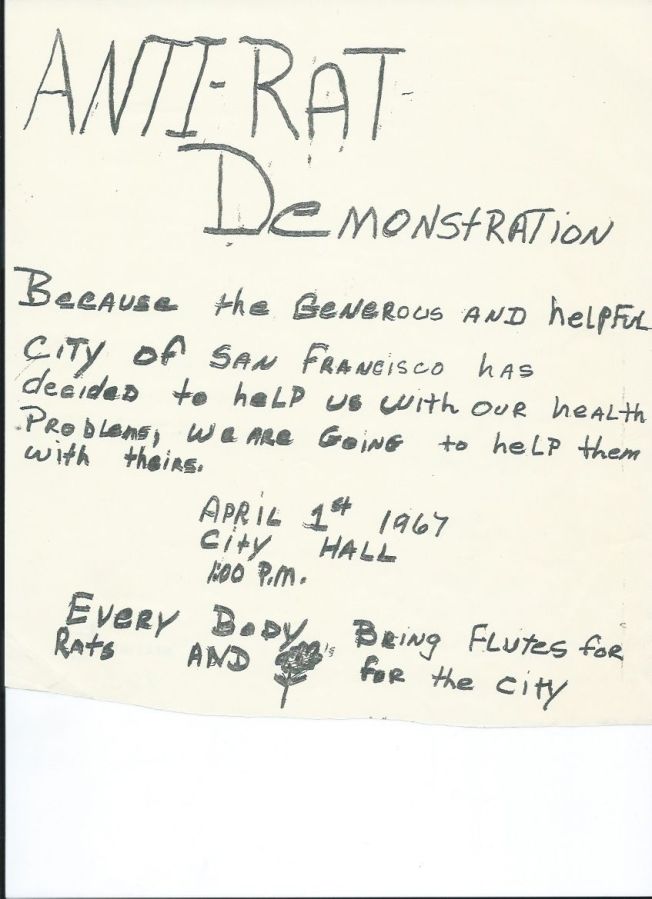 ANTI-RAT
DEMONSTRATION
BECAUSE the GENEROUS AND helPFUL
CITY OF SAN FRANCISCO has
decided to heLP US with OUR health
PRoBlems, WE ARE GoING to heLP them
with theirs.
APRiL 1st 1967
City HALL
1:00 P.M.
EVERY BoDY BRing FLUTES FoR
Rats AND 's FoR the city